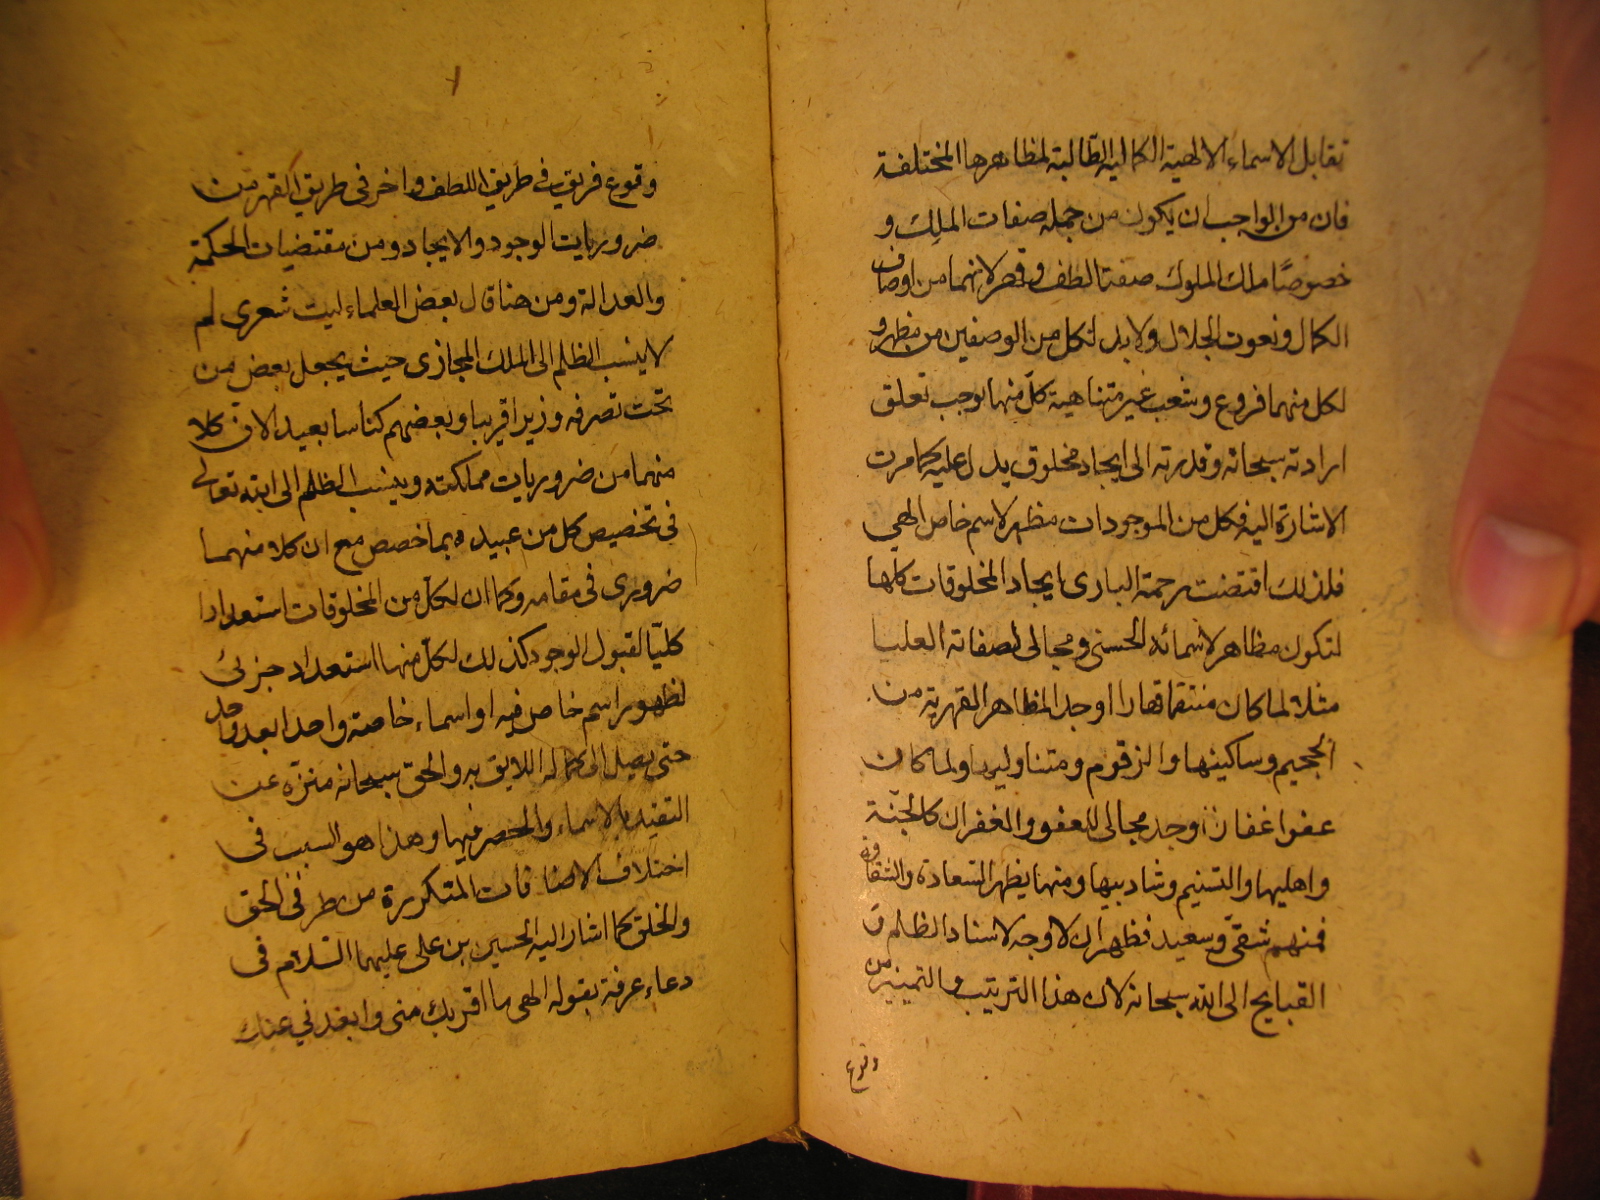 تقابل الاسماء الالهية الكماليه الطّالبة لمظاهرها المختلفة
فان من الواجب ان يكون من جمله صفات الملِك و
خصوصًا ملك الملوك صفتا لطف و قهر لانهما من اوصاف
الكمال و نعوت الجلال ولا بد لكل من الوصفين من مظهر و
لكل منهما فروع و شعب غير متناهية كلّ منها يوجب تعلق
ارادته سبحانه و قدرته الى ايجاد مخلوق يدل عليه كما مرت
الاشارة اليه فكل من الموجودات مظهر لاسم خاص الهي
فلذلك اقتضت رحمة البارى ايجاد المخلوقات كلها
لتكون مظاهر لاسمائه الحسنى و مجالى لصفاته العليا
مثلا لما كان منتقما قهارا اوجد المظاهر القهرية من
الجحيم و ساكينها و الزقوم و متناوليها و لما كان
عفوا غفارا اوجد مجالى للعفو و الغفران كالجنّة
و اهليها و التسنيم و شاربيها و منها يظهر السّعادة و الشقاوة
فمنهم شقىّ و سعيد فظهر ان لا وجه لاسناد الظلم و
القبايح الى الله سبحانه لان هذا الترتيب و التمييز من
وقوع
وقوع فريق فى طريق اللطف و اخر فى طريق القهر من
ضروريات الوجود و الايجاد و من مقتضيات الحكمة
و العدالة و من هنا قال بعض العلماء ليت شعرى لم
لا ينسب الظلم الى الملك المجازى حيث يجعل بعض من
تحت تصرفه وزيرا قريبا و بعضهم كناسا بعيدا لان كلا
منهما من ضروريات مملكته و ينسب الظلم الى الله تعالى
فى تخصيص كل من عبيده بما خصص مع ان كلا منهما
ضرورى فى مقامه و كما ان لكلّ من المخلوقات استعدادا
كليّا لقبول الوجود كذلك لكلّ منها استعداد جزئى
لظهور اسم خاص فيه او اسماء خاصة واحدا بعد واحد
حتى يصل الى كماله اللايق به و الحق سبحانه منزّه عن
التقيد بالاسماء و الحصر فيها و هذا هو السبب فى
اختلاف الاضافات المتكررة من طرفى الحق
و الخلق كما اشار اليه الحسين بن على عليهما السّلام فى
دعاء عرفة بقوله الهى ما اقربك منى و ابعدنى عنك